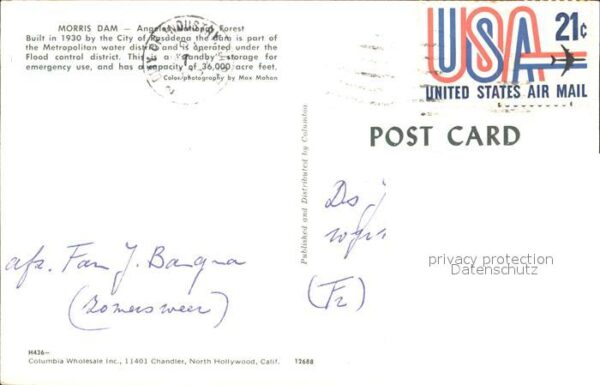 MORRIS DAM — Angeles National Forest
Built in 1930 by the City of Pasadena the dam is part of
the Metropolitan water district and is operated under the
Flood control district. This is a "standby" storage for
emergency use, and has a capacity of 36,000 acre feet.
Color photography by Max Mahan
USA 21c
UNITED STATES AIR MAIL
POST CARD
Published and Distributed by Columbia
Ds J
(Fr)
privacy protection
Datenschutz
afz. Fam J. Bangma
(Zomersweer)
H436—
Columbia Wholesale Inc., 11401 Chandler, North Hollywood, Calif. 12688